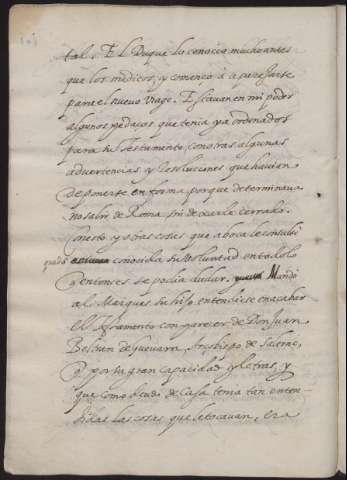 tal. El Duque lo conocio mucho antes
que los medicos, y començo a aparejarse
para el nuevo viage. Estavan en mi poder
algunos pedaços que tenia ya ordenados
para su Testamento, con otras algunas
advertencias y resoluciones que havian
de ponerse en forma porque determinava
no salir de Roma sin dexarle cerrado.
Con esto y otras cosas que a boca le consulté
pude conocida su voluntad en todo lo
que entonces se podia dudar. Mandó
al Marques su hijo entendiese en acabar
el Testamento con parecer de Don Juan
Beltran de Guevara, Arçobispo de Salerno,
que por su gran capacidad y letras, y
que como deudo de Casa tenia tan enten-
didas las cosas que le tocavan, era